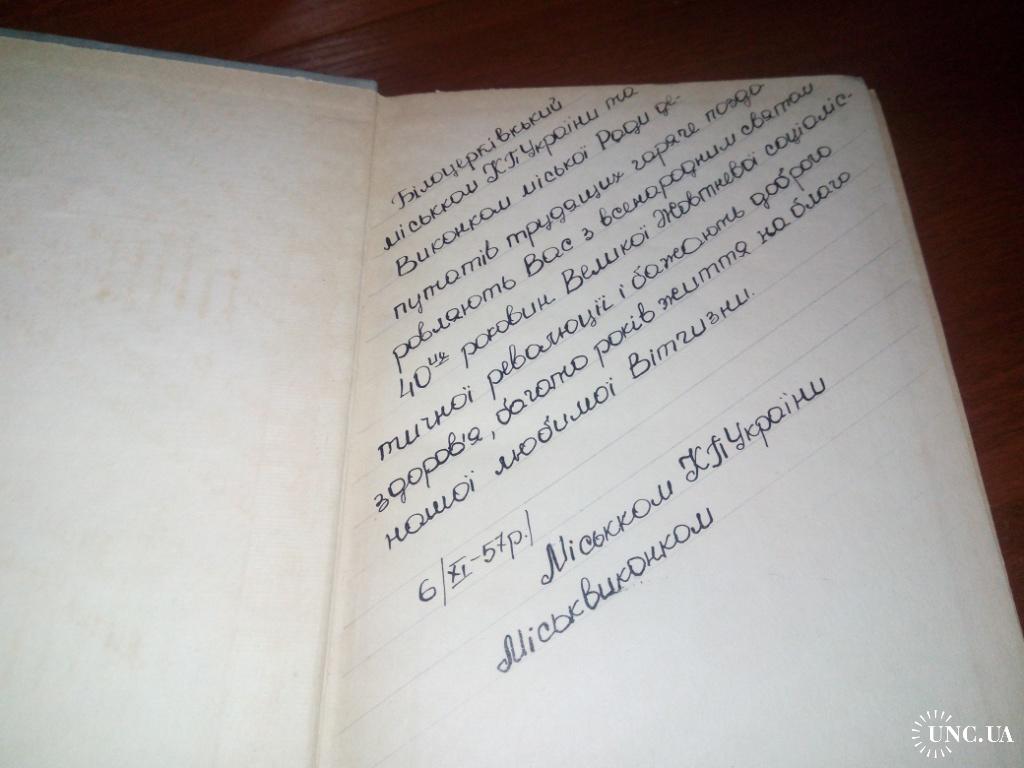 Білоцерківкський
міськком КП України та
Виконком міської Ради де-
путатів трудящих гаряче поздо
ровляють Вас з всенародним святом
40их роковин Великої Жовтневої соціаліс-
тичної революції і бажають доброго
здоров'я, багато років життя на благо
нашої любимої Вітчизни.
6/XI-57р./
Міськком КП України
Міськвиконком
UNC.UA